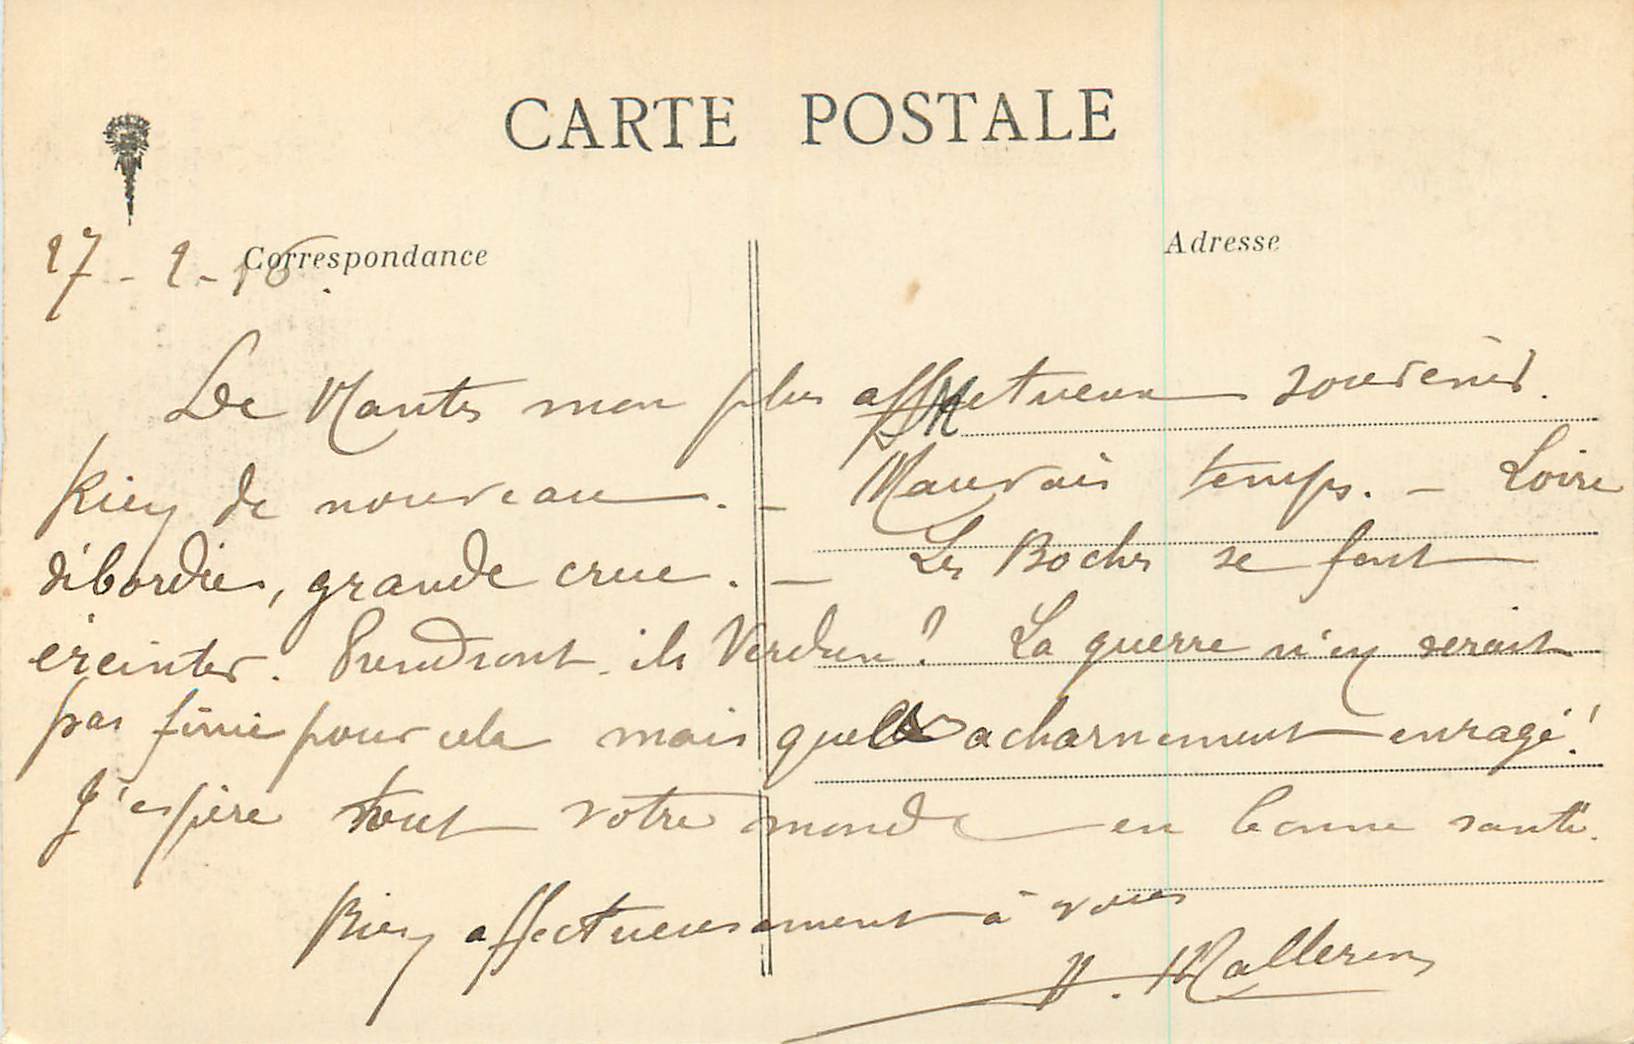 CARTE POSTALE
Correspondance
Adresse
27-2-16.
De Nantes mon plus affectueux souvenir.
Rien de nouveau. - Mauvais temps. - Loire
débordée, grande crue. - Les Bochs se font
éreinter. Prendront-ils Verdun? La guerre n'en serait
pas finie pour cela mais quel acharnement enragé!
J'espère tout votre monde en bonne santé.
Bien affectueusement à vous
Mallerin